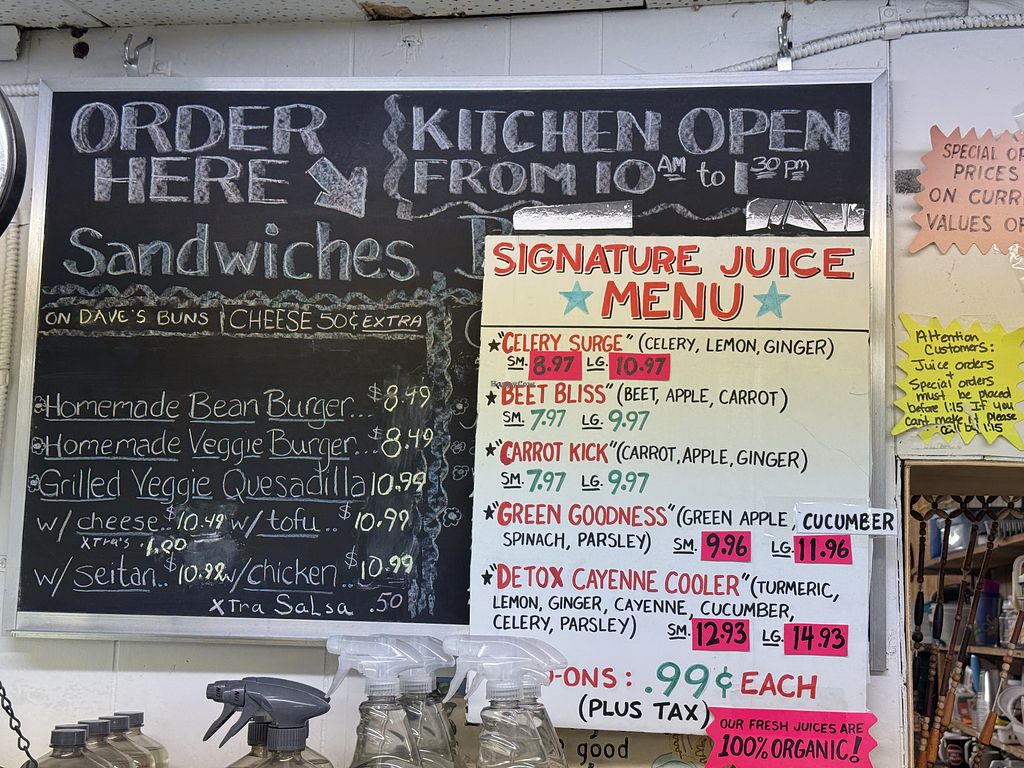 ORDER
HERE
KITCHEN OPEN
FROM 10 AM to 1 30 pm
Sandwiches
ON DAVE'S BUNS | CHEESE 50¢ EXTRA
Homemade Bean Burger... $8.49
Homemade Veggie Burger... $8.49
Grilled Veggie Quesadilla 10.99
w/ cheese.. $10.49 w/ tofu.. $10.99
xTra's 1.00
w/ seitan.. $10.99 w/ chicken.. $10.99
xTra Salsa .50
SIGNATURE JUICE
MENU
"CELERY SURGE" (CELERY, LEMON, GINGER)
SM. 8.97 LG. 10.97
HappyCow
"BEET BLISS" (BEET, APPLE, CARROT)
SM. 7.97 LG. 9.97
"CARROT KICK" (CARROT, APPLE, GINGER)
SM. 7.97 LG. 9.97
"GREEN GOODNESS" (GREEN APPLE, CUCUMBER
SPINACH, PARSLEY) SM. 9.96 LG. 11.96
"DETOX CAYENNE COOLER" (TURMERIC,
LEMON, GINGER, CAYENNE, CUCUMBER,
CELERY, PARSLEY) SM. 12.93 LG. 14.93
-ONS: .99¢ EACH
(PLUS TAX)
OUR FRESH JUICES ARE
100% ORGANIC!
good
SPECIAL OR
PRICES
ON CURR
VALUES OF
Attention
Customers:
Juice orders
+
Special orders
must be placed
before 1:15 If you
cant make it please
call by 1:15